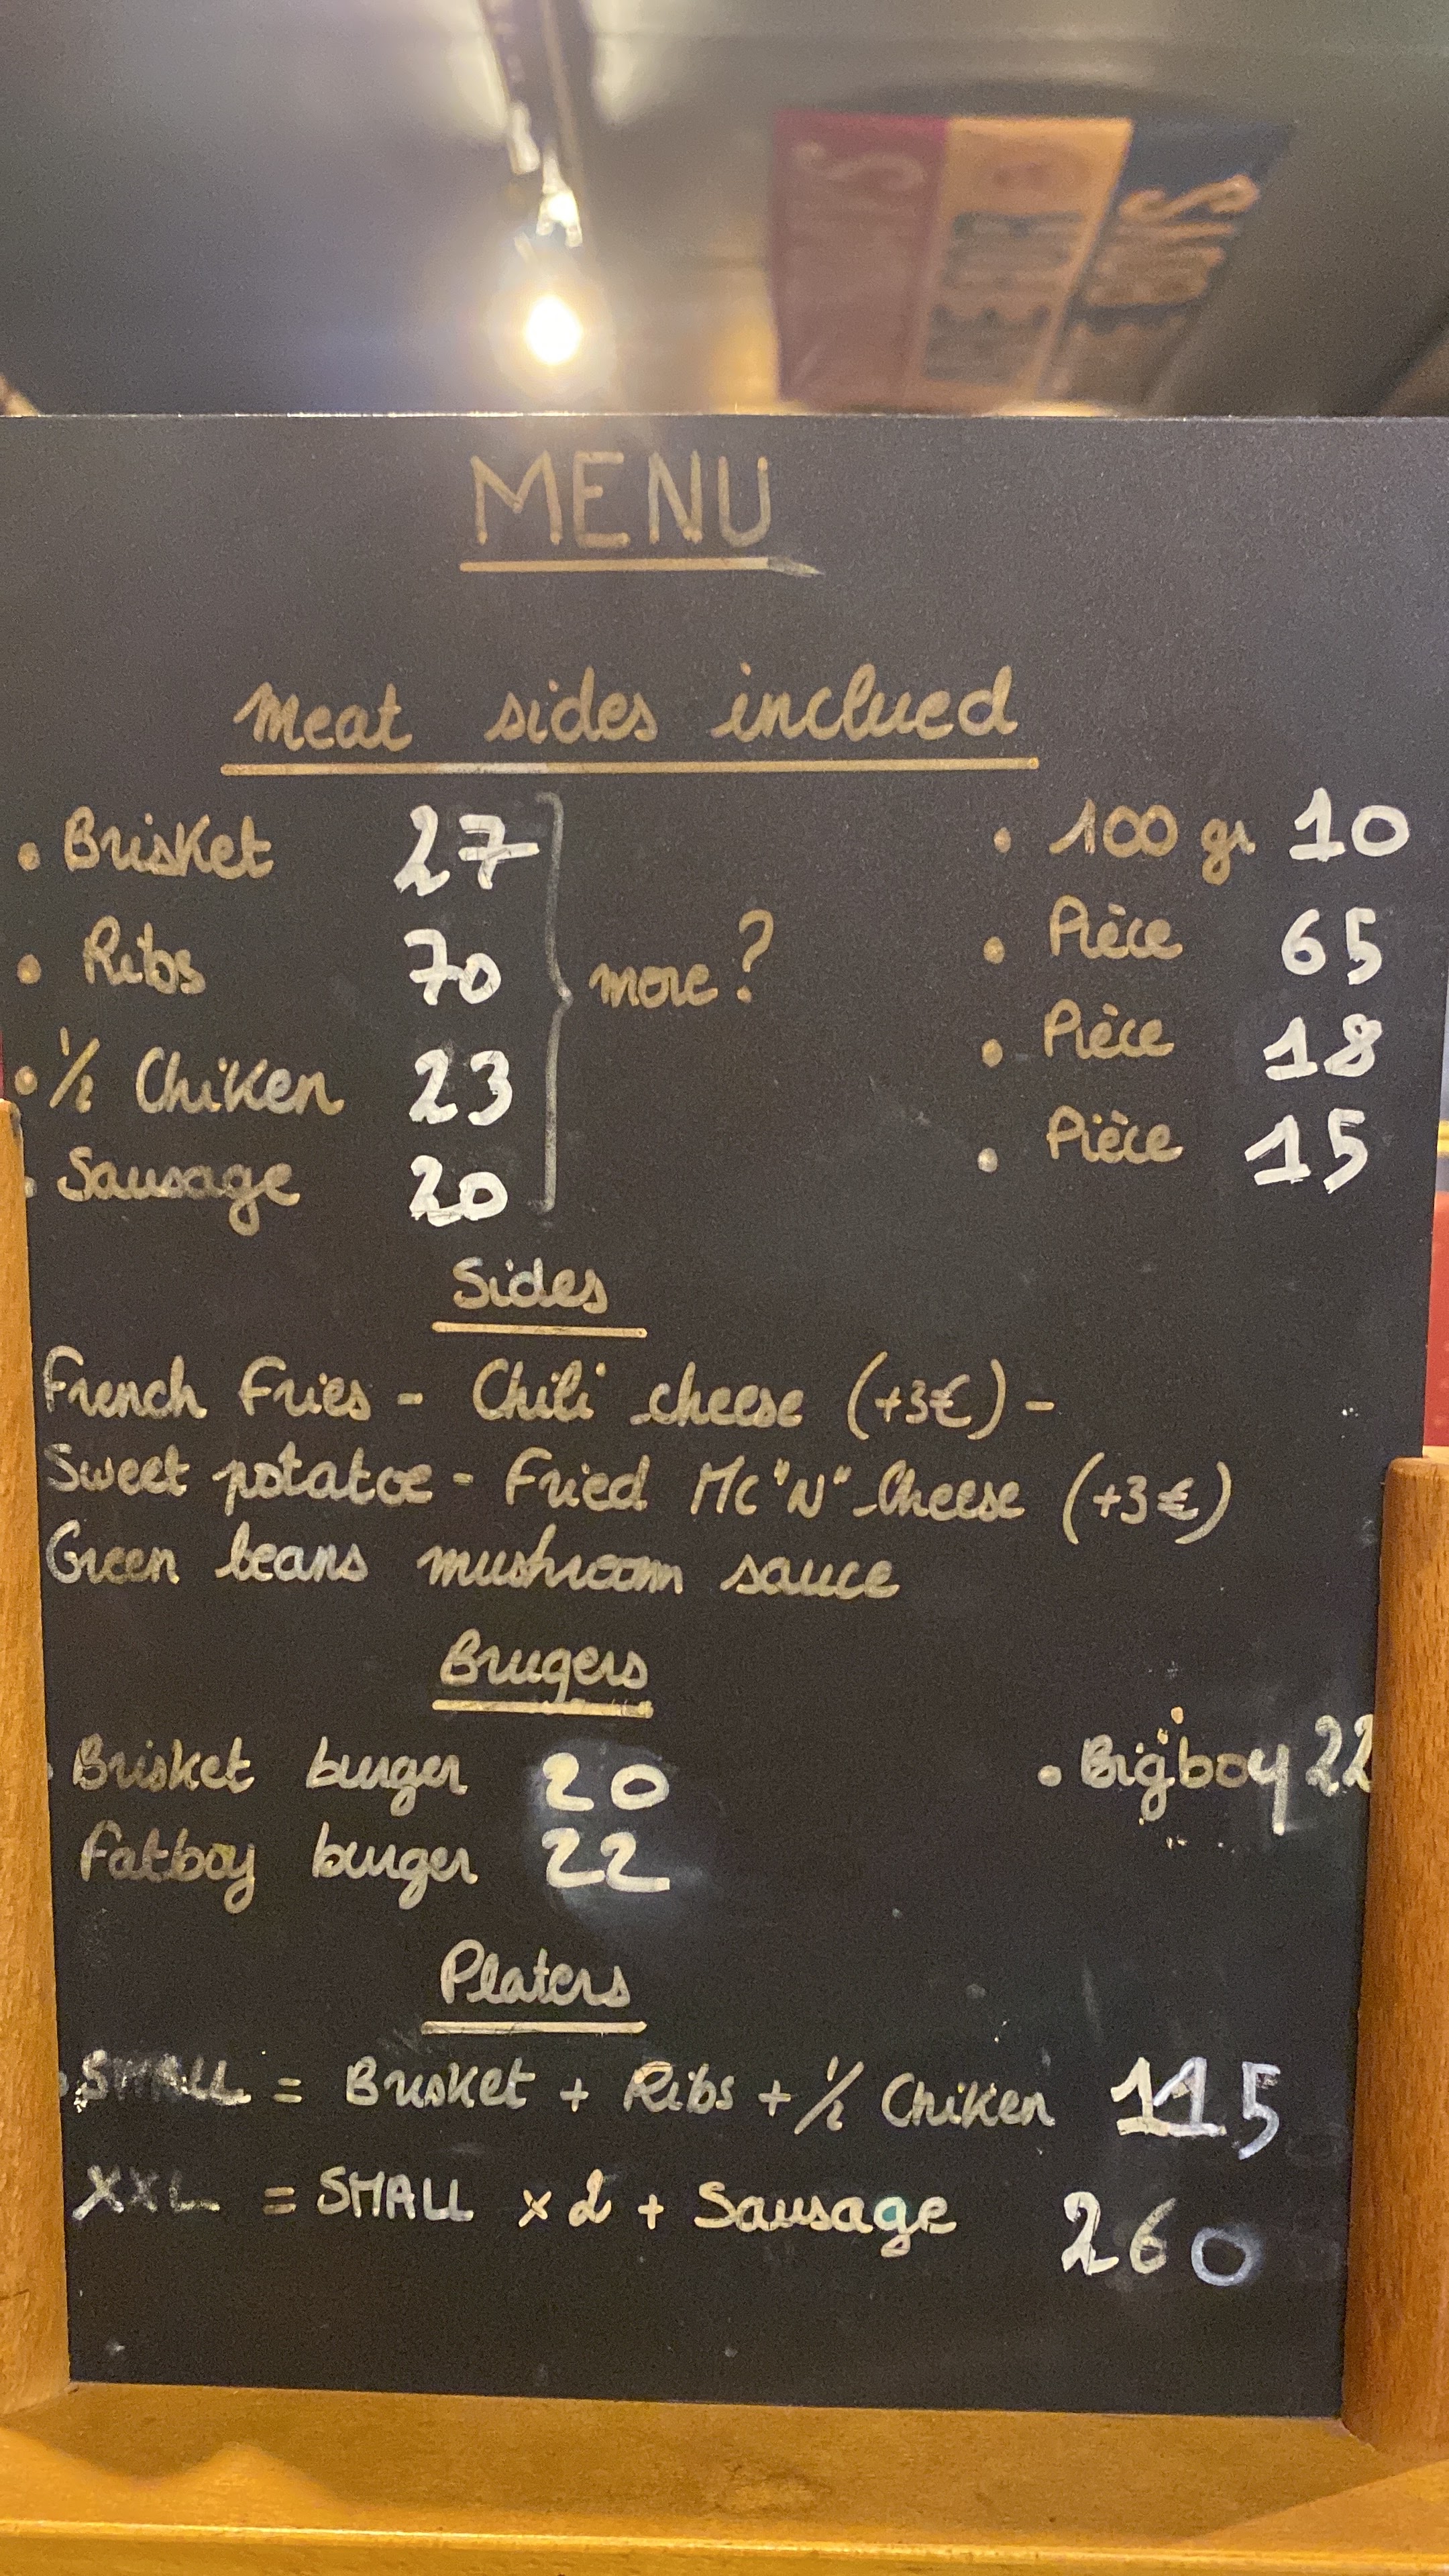 MENU
Meat sides inclued
• Brisket 27
• Ribs 70
• 1/2 Chiken 23
• Sausage 20
more?
• 100 gr 10
• Pièce 65
• Pièce 18
• Pièce 15
Sides
French Fries - Chili cheese (+3€) -
Sweet potatoe - Fried Mc"N"Cheese (+3€)
Green beans mushroom sauce
Brugers
Brisket burger 20
• Bigboy 22
Fatboy burger 22
Platers
• SMALL = Brisket + Ribs + 1/2 Chiken 115
XXL = SMALL x2 + Sausage 260